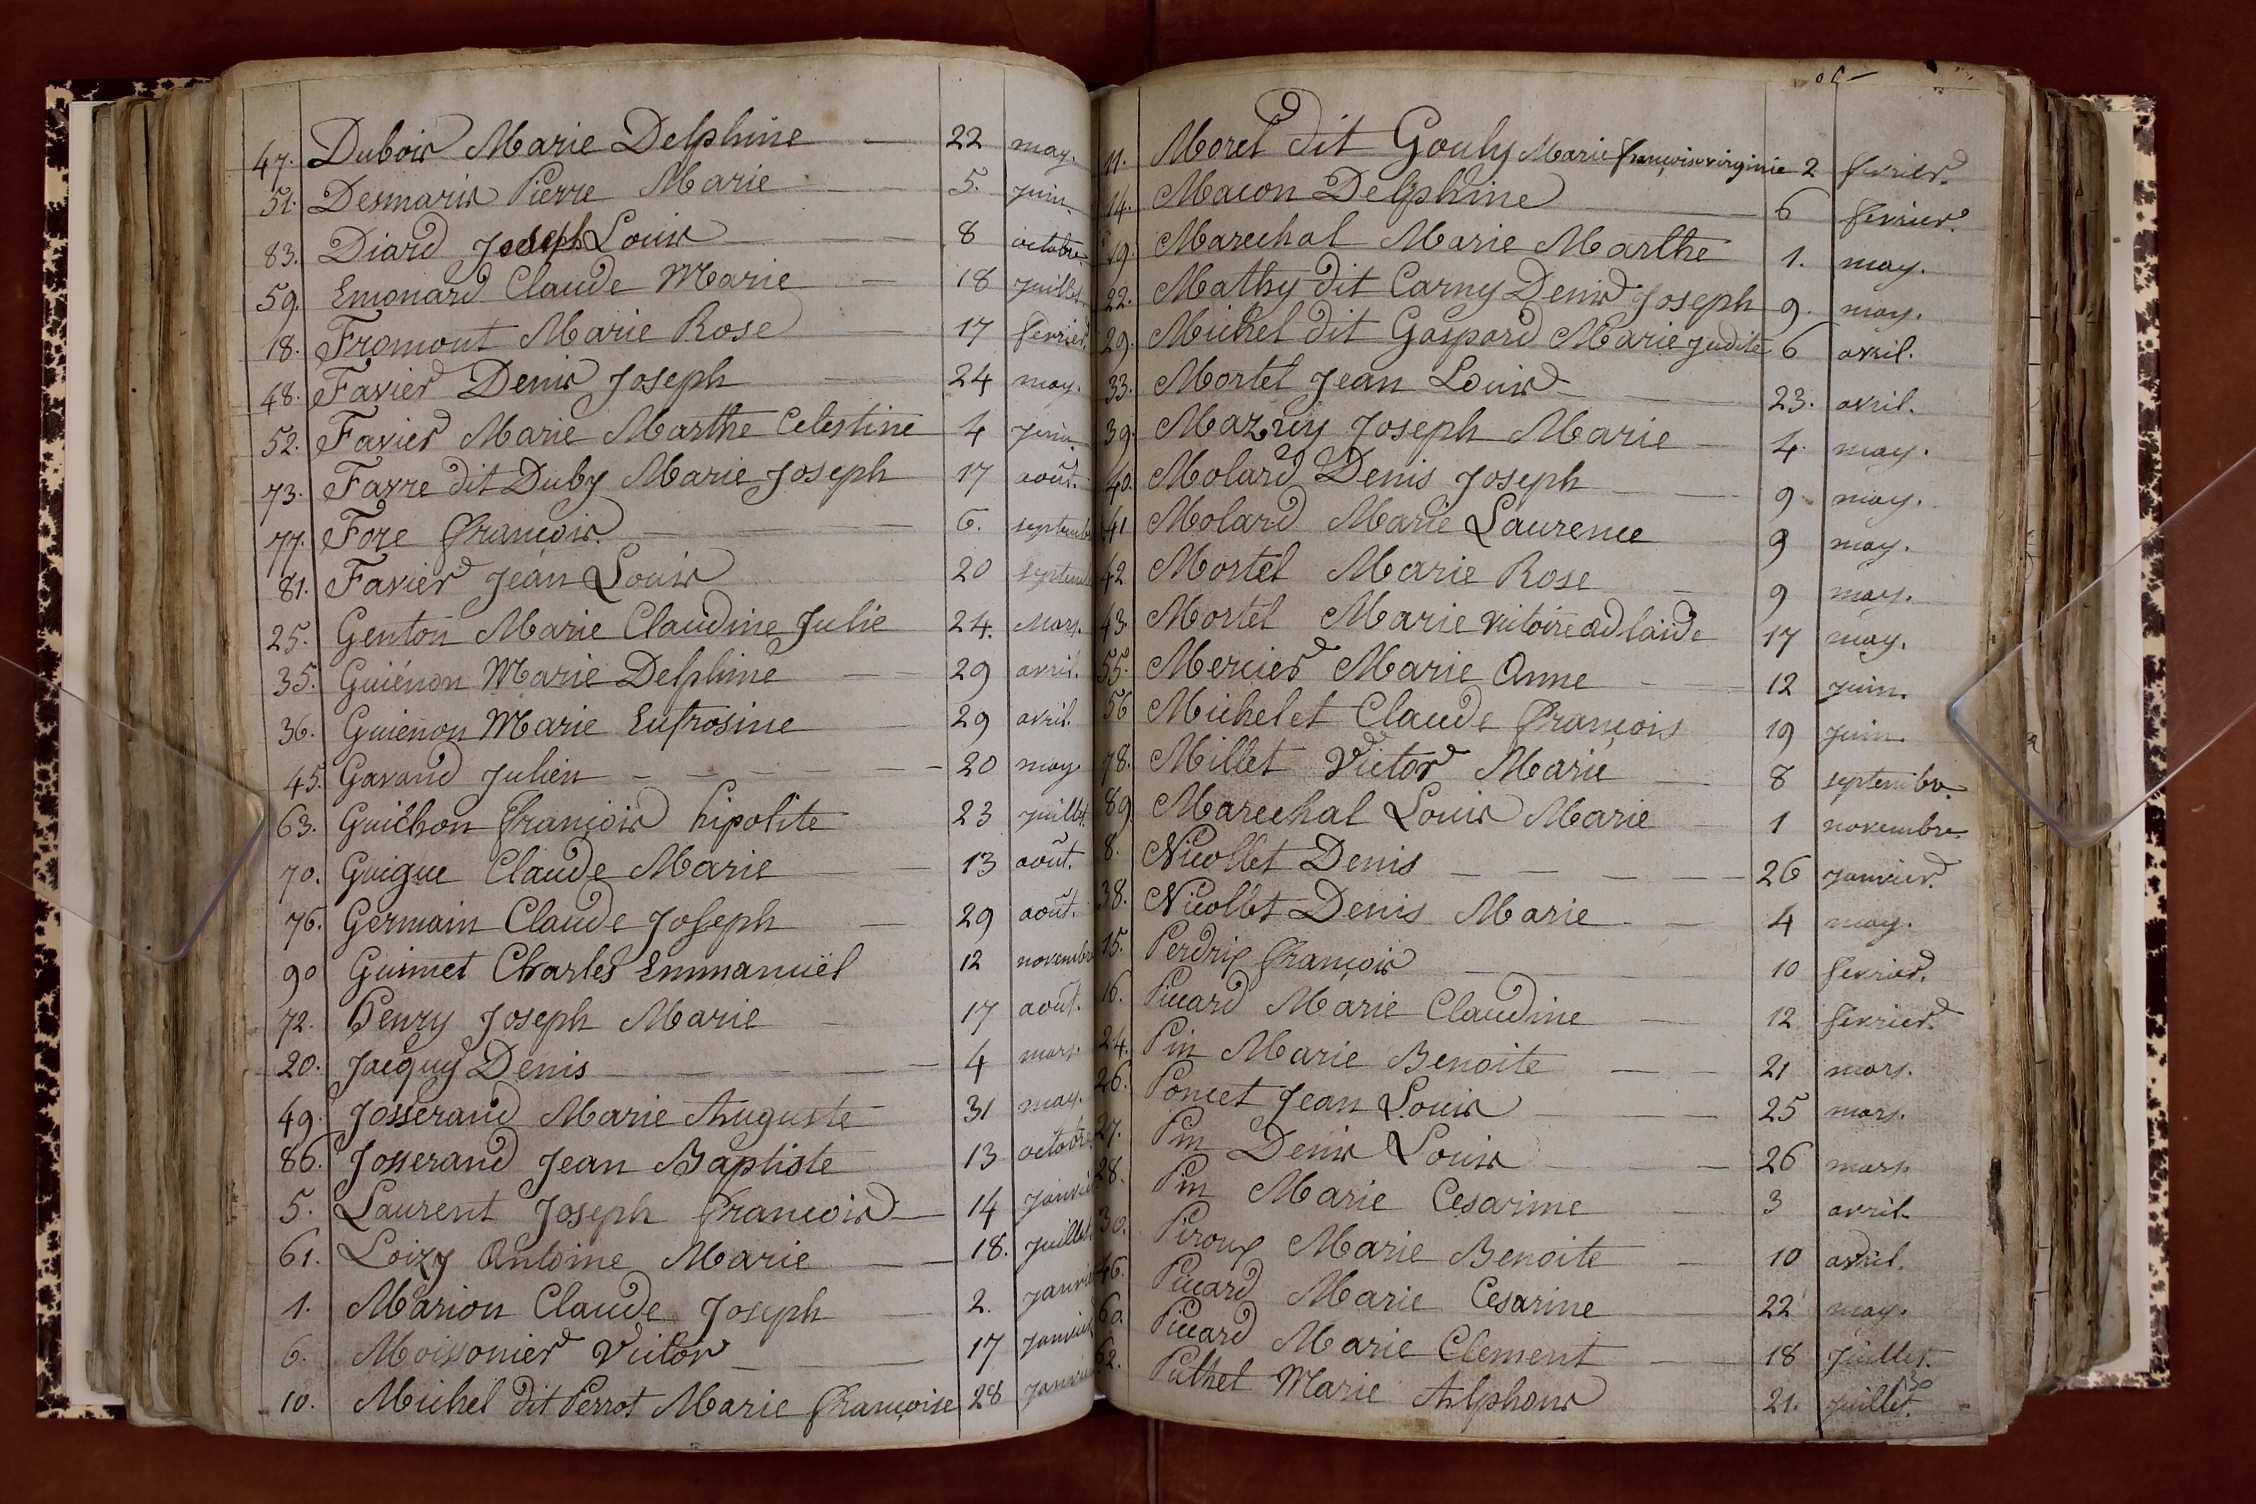 47. Dubois Marie Delphine 22 may.
51. Desmaris Pierre Marie 5. juin.
83. Diard Joseph Louis 8 octobre.
59. Emonard Claude Marie 18 juillet
18. Fromont Marie Rose 17 fevrier.
48. Favier Denis Joseph 24 may.
52. Favier Marie Marthe Celestine 4 juin.
73. Favre dit Duby Marie Joseph 17 août.
77. Fore françois 6. septemb
81. Favier Jean Louis 20 septemb
25. Genton Marie Claudine Julie 24. Mars.
35. Guiénon Marie Delphine 29 avril.
36. Guienon Marie Eufrosine 29 avril.
45. Gavand Julien 20 may
63. Guichon françois hipolite 23 juillet.
70. Guigue Claude Marie 13 août.
76. Germain Claude Joseph 29 août.
90 Guimet Charles Emmanuël 12 novembre
72. Henry Joseph Marie 17 août.
20. Jacquy Denis 4 mars
49. Josserand Marie Auguste 31 may.
86. Josserand Jean Baptiste 13 octobre
5. Laurent Joseph françois 14 janvier
61. Loizy Antoine Marie 18. juillet.
1. Marion Claude Joseph 2. janvier
6. Moissonier Victor 17 janvier
10. Michel dit Perrot Marie françoise 28 janvier
11. Morel dit Gouly Marie françoise virginie 2 fevrier.
14. Macon Delphine 6 fevrier.
19. Marechal Marie Marthe 1. may.
22. Mathy dit Carny Denis Joseph 9. may.
29. Michel dit Gaspard Marie Judite 6 avril.
33. Mortel Jean Louis 23. avril.
39. Mazuy Joseph Marie 4. may.
40. Molard Denis Joseph 9 may.
41 Molard Marie Laurence 9 may.
42 Mortel Marie Rose 9 may.
43 Mortel Marie victoire adlaide 17 may.
55. Mercier Marie Anne 12 juin.
56 Michelet Claude françois 19 juin.
78. Millet Victor Marie 8 septembre.
89 Marechal Louis Marie 1 novembre.
8. Nicollet Denis 26 janvier.
38. Nicollet Denis Marie 4 may.
15. Perdrix françois 10 fevrier.
16. Piccard Marie Claudine 12 fevrier.
24. Pin Marie Benoite 21 mars.
26. Poncet Jean Louis 25 mars.
27. Pin Denis Louis 26 mars
28. Pin Marie Cesarine 3 avril.
30. Piroux Marie Benoite 10 avril.
46. Piccard Marie Cesarine 22 may.
60. Piccard Marie Clement 18 juillet.
62. Puthet Marie Alphons 21. juillet.